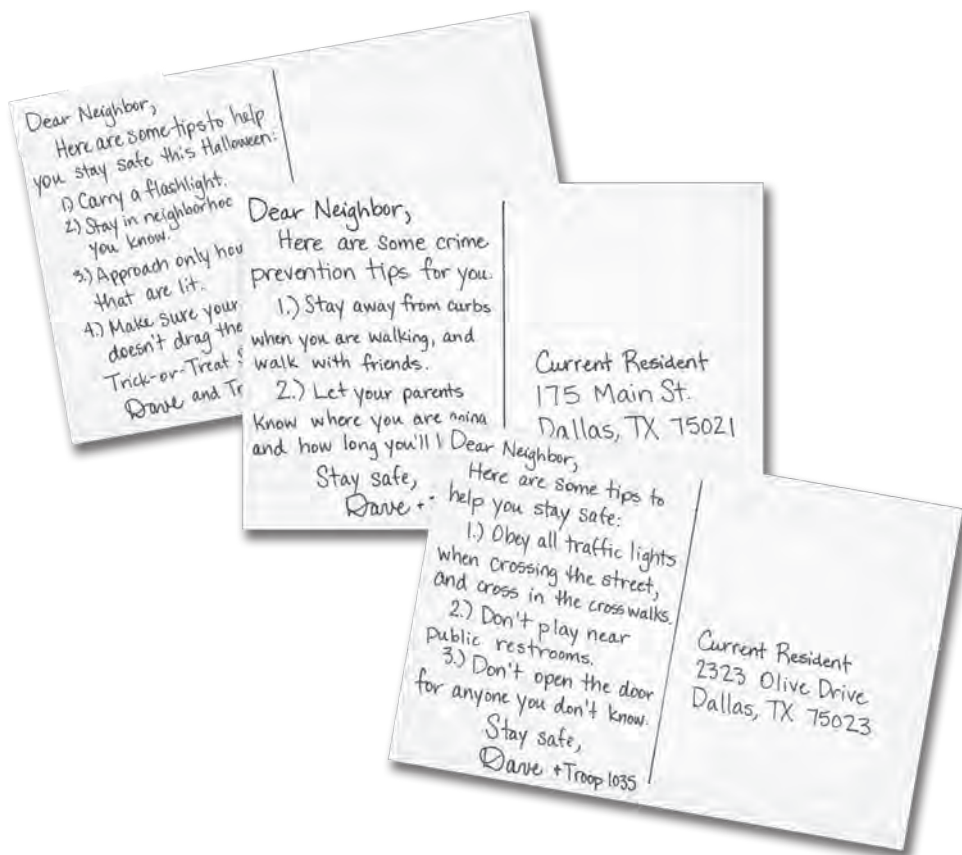 Dear Neighbor,
Here are some tips to help
you stay safe this Halloween:
1) Carry a flashlight.
2.) Stay in
you know.
3.) Approach only
that are lit.
4.) Make sure your
doesn't drag
Trick-or-Treat
Dave and
Dear Neighbor,
Here are some crime
prevention tips for you.
1.) Stay away from curbs
when you are walking, and
walk with friends.
2.) Let your parents
know where you are going
and how long you'll
Stay safe,
Dave +
Current Resident
175 Main St.
Dallas, TX 75021
Dear Neighbor,
Here are some tips to
help you stay safe:
1.) Obey all traffic lights
when crossing the street,
and cross in the crosswalks.
2.) Don't play near
public restrooms.
3.) Don't open the door
for anyone you don't know.
Stay safe,
Dave + Troop 1035
Current Resident
2323 Olive Drive
Dallas, TX 75023